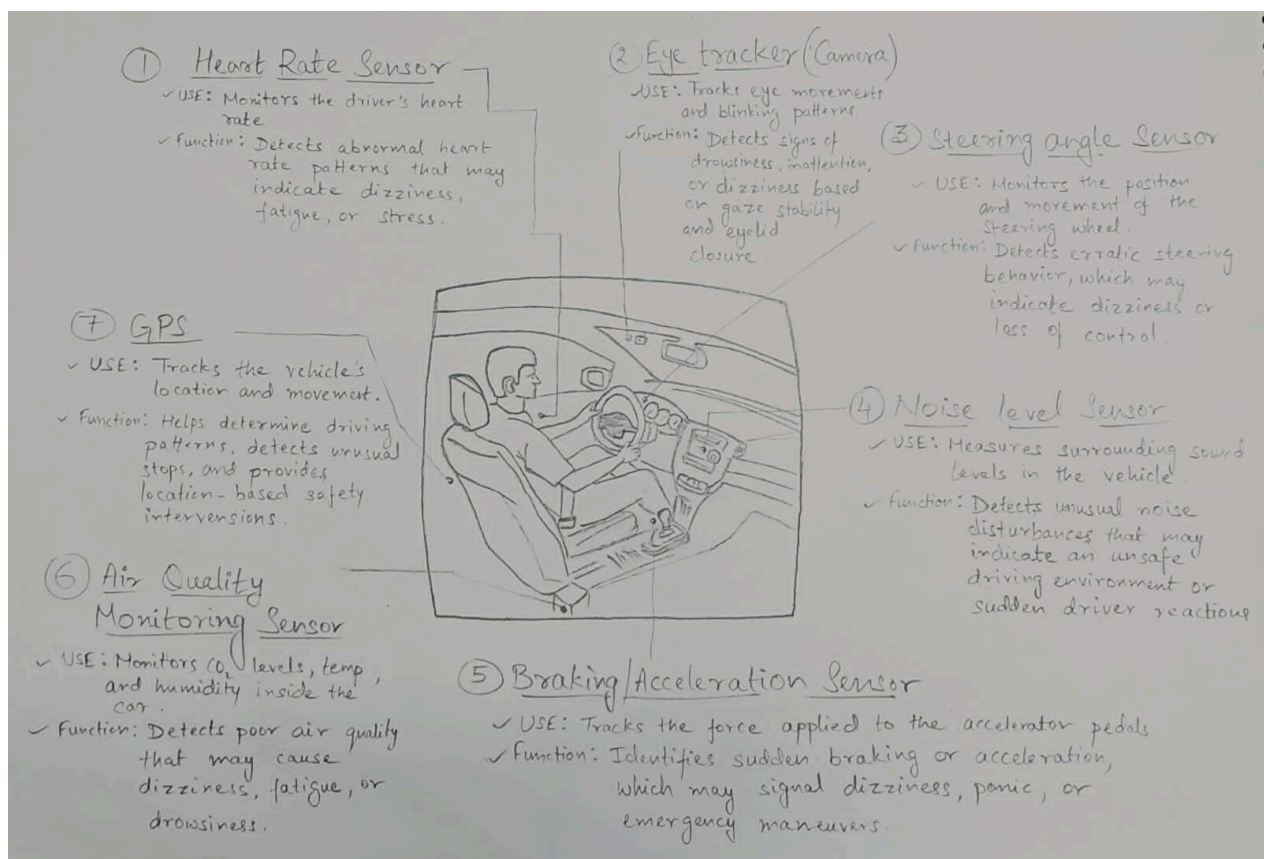 ① Heart Rate Sensor
✓ USE: Monitors the driver's heart
rate
✓ Function: Detects abnormal heart
rate patterns that may
indicate dizziness,
fatigue, or stress.
② Eye tracker (Camera)
✓ USE: Tracks eye movements
and blinking patterns.
✓ Function: Detects signs of
drowsiness, inattention,
or dizziness based
or gaze stability
and eyelid
closure.
③ Steering angle Sensor
✓ USE: Monitors the position
and movement of the
steering wheel.
✓ Function: Detects erratic steering
behavior, which may
indicate dizziness or
loss of control.
④ Noise level Sensor
✓ USE: Measures surrounding sound
levels in the vehicle.
✓ Function: Detects unusual noise
disturbances that may
indicate an unsafe
driving environment or
sudden driver reactions
⑤ Braking/Acceleration Sensor
✓ USE: Tracks the force applied to the accelerator pedals
✓ Function: Identifies sudden braking or acceleration,
which may signal dizziness, panic, or
emergency maneuvers.
⑥ Air Quality
Monitoring Sensor
✓ USE: Monitors CO₂ levels, temp,
and humidity inside the
car.
✓ Function: Detects poor air quality
that may cause
dizziness, fatigue, or
drowsiness.
⑦ GPS
✓ USE: Tracks the vehicle's
location and movement.
✓ Function: Helps determine driving
patterns, detects unusual
stops, and provides
location-based safety
intervensions.